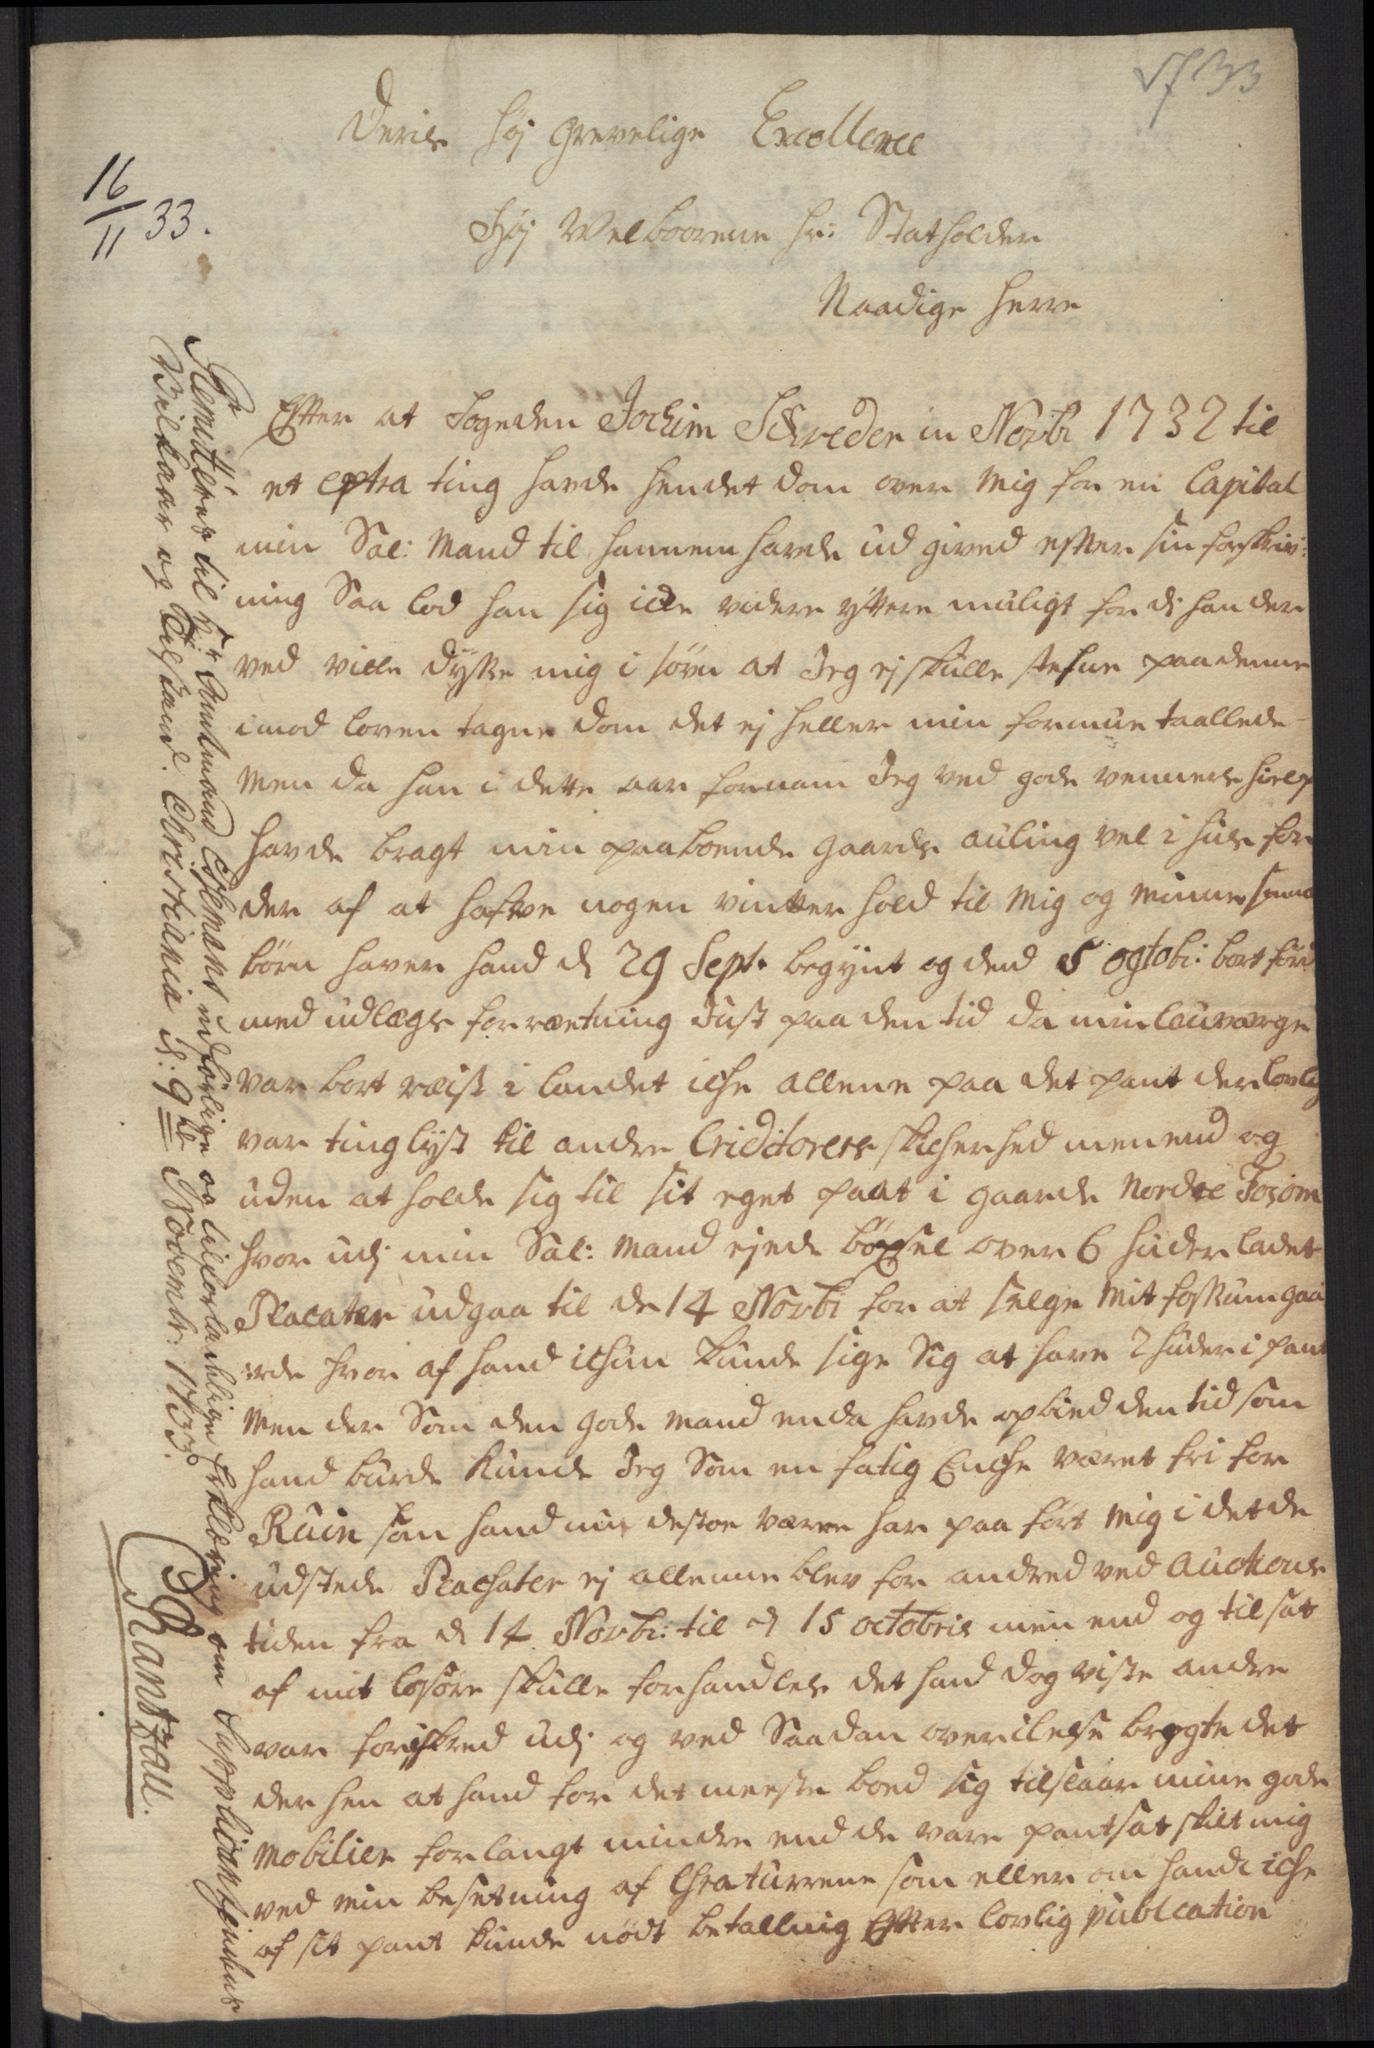 16/11 33.
Deris høj grevelige Excellence
Høj Velboorene hr: Statholder
Naadige Herre
Efter at fogeden Jochim Schreder in Novbr 1732 til
et extra ting hafde hendet dom over mig for en Capital
min Sal: Mand til hannem hafde ud gived efter sin forskriv:
ning Saa lod han sig icke videre yttere muligt for di han der
ved ville dysse mig i søvn at Jeg ej skulle stefne paa denne
imod loven tagne dom det ej heller min formue taallede
Men da han i dette aar fornam Jeg ved gode venners hielp
hafde bragt min paaboende gaards auling vel i huus for
der af at hafve nogen vinter hold til mig og minne smaa
børn haver hand d 29 Sept. begynt og dend 5 ogtobr: bort ført
med udlægs forrætning Just paa den tid da min lauværge
var bort reist i landet iche allene paa det pant der lovlig
var tinglyst til andre Criditorers sicherhed men end og
uden at holde sig til sit eget pant i gaarde Nordre Fosom
hvor udj min Sal: Mand ejede bøxsel over 6 huder ladet
Placater udgaa til de 14 Novbr for at selge Mit fosKum gaa
:rde hvor af hand ichun kunde sige Sig at have 2 huder i pant
Men der Som den gode mand enda hafde opbied den tid som
hand burde kunde Jeg Som en fatig Enche været fri for
Ruin som hand nu desto værre har paa ført mig i det de
udstede Plachater ej allenne blev for andred ved Auctions
tiden fra d 14 Novbr: til d 15 octobris men end og til sat
af mit løsøre skulle forhandles det hand dog viste andre
var forskred udj og ved Saadan overilelse bragte det
der hen at hand for det meeste boed sig tilslaar mine gode
Mobilier for langt mindre end de vare pantsat skilt mig
ved min besetning af Chraturrene som eller om hand iche
af sit pant kunde nødt betalling Efter lovlig publication
Remitteres til Hr Amtmand
nødvendige og tilforladelige Erklæring om Supplicantindens
Vilkaar og Tilstand. Christiania d: 9de Novembr: 1733.
Rantzau.